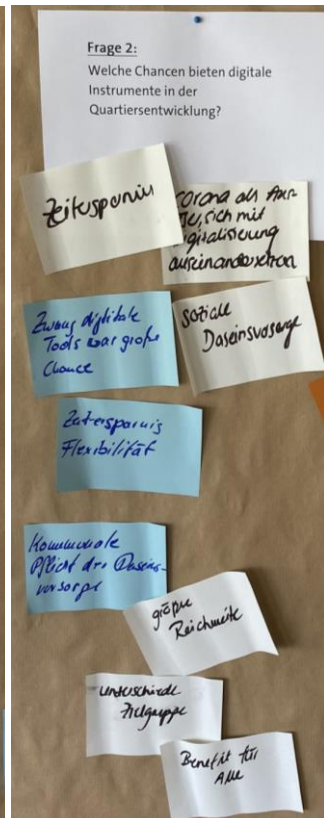 Frage 2:
Welche Chancen bieten digitale
Instrumente in der
Quartiersentwicklung?
Zeitersparnis
Corona als
sich mit
Digitalisierung
auseinandersetzen
Zwang digitale
Tools war große
Chance
soziale
Daseinsvorsorge
Zeitersparnis
Flexibilität
Kommunale
Pflicht der Daseins-
vorsorge
große
Reichweite
unterschiedl.
Zielgruppe
Benefit für
Alle